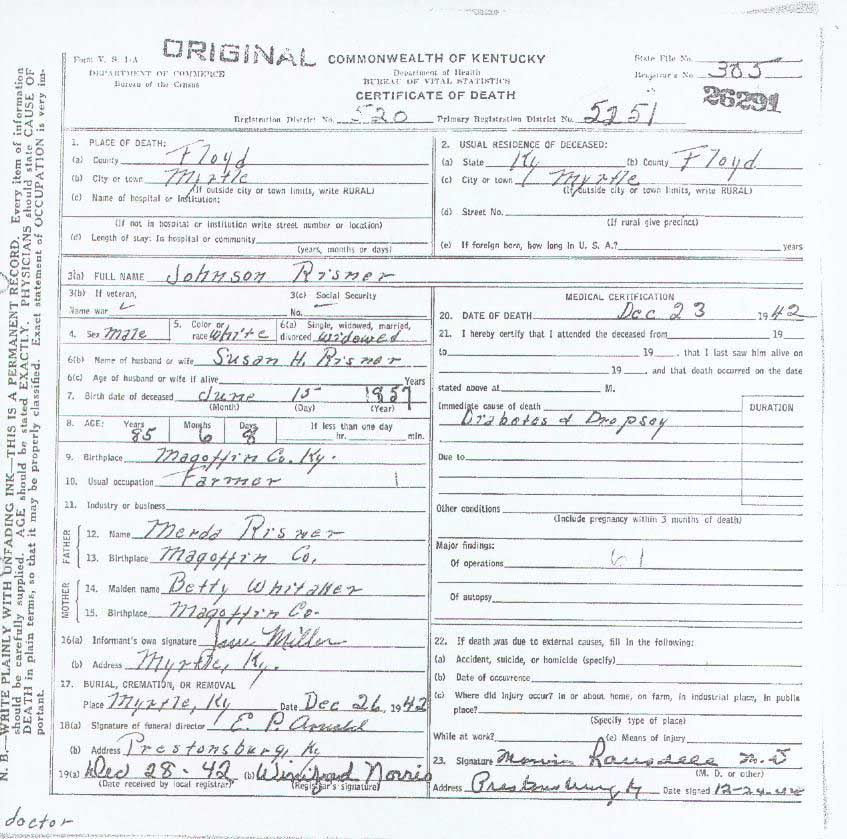 ORIGINAL
Form V. S. 1-A
DEPARTMENT OF COMMERCE
Bureau of the Census
COMMONWEALTH OF KENTUCKY
Department of Health
BUREAU OF VITAL STATISTICS
CERTIFICATE OF DEATH
State File No.
Registrar's No. 385
26291
Registration District No. 520 Primary Registration District No. 5251
1. PLACE OF DEATH:
(a) County Floyd
(b) City or town Myrtle
(If outside city or town limits, write RURAL)
(c) Name of hospital or institution:
(If not in hospital or institution write street number or location)
(d) Length of stay: In hospital or community
(years, months or days)
2. USUAL RESIDENCE OF DECEASED:
(a) State Ky (b) County Floyd
(c) City or town Myrtle
(If outside city or town limits, write RURAL)
(d) Street No.
(If rural give precinct)
(e) If foreign born, how long in U. S. A.? years
3(a) FULL NAME Johnson Risner
3(b) If veteran, 3(c) Social Security
Name war No.
4. Sex male 5. Color or race white 6(a) Single, widowed, married, divorced widowed
6(b) Name of husband or wife Susan H. Risner
6(c) Age of husband or wife if alive Years
7. Birth date of deceased June 15 1857
(Month) (Day) (Year)
8. AGE: Years Months Days If less than one day
85 6 8 hr. min.
9. Birthplace Magoffin Co. Ky.
10. Usual occupation Farmer
11. Industry or business
FATHER
12. Name Merda Risner
13. Birthplace Magoffin Co,
MOTHER
14. Maiden name Betty Whitaker
15. Birthplace Magoffin Co.
16(a) Informant's own signature Miller
(b) Address Myrtle, Ky.
17. BURIAL, CREMATION, OR REMOVAL
Place Myrtle, Ky Date Dec 26, 1942
18(a) Signature of funeral director E. P. Arnold
(b) Address Prestonsburg, K.
19(a) Dec 28-42 (b) Winifred Norris
(Date received by local registrar) (Registrar's signature)
MEDICAL CERTIFICATION
20. DATE OF DEATH Dec 23 1942
21. I hereby certify that I attended the deceased from 19
to 19 , that I last saw him alive on
19 , and that death occurred on the date
stated above at M.
Immediate cause of death DURATION
Diabotos & Dropsoy
Due to
Other conditions
(Include pregnancy within 3 months of death)
Major findings:
Of operations 61
Of autopsy
22. If death was due to external causes, fill in the following:
(a) Accident, suicide, or homicide (specify)
(b) Date of occurrence
(c) Where did injury occur? In or about home, on farm, in industrial place, in public
place?
(Specify type of place)
While at work? (e) Means of injury
23. Signature M.D
(M. D. or other)
Address Prestonsburg Ky Date signed
N. B.—WRITE PLAINLY WITH UNFADING INK—THIS IS A PERMANENT RECORD. Every item of information
should be carefully supplied. AGE should be stated EXACTLY. PHYSICIANS should state CAUSE OF
DEATH in plain terms, so that it may be properly classified. Exact statement of OCCUPATION is very im-
portant.
doctor